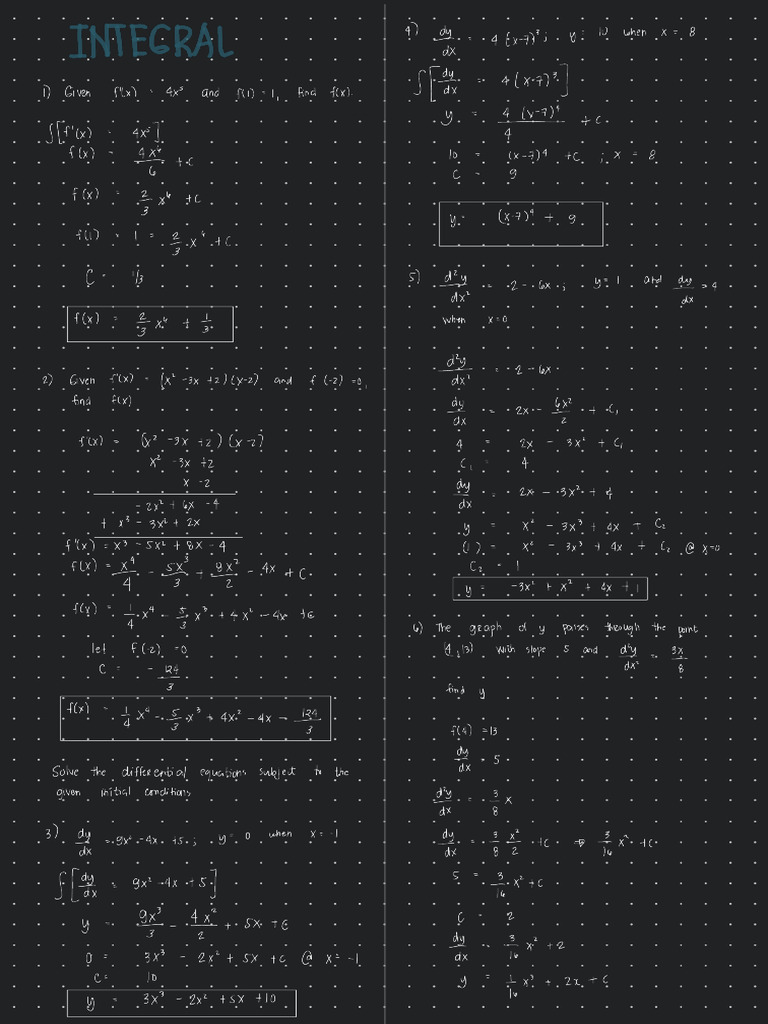 INTEGRAL
1) Given f'(x) = 4x³ and f(1) = 1, find f(x).
∫[f'(x) = 4x²]
f(x) = 4x⁶/6 + C
f(x) = 2/3 x⁶ + C
f(1) = 1 = 2/3 x⁶ + C
C = 1/3
f(x) = 2/3 x⁶ + 1/3
2) Given f'(x) = (x² - 3x + 2)(x-2) and f(-2) = 0,
find f(x)
f'(x) = (x² - 3x + 2)(x-2)
x² - 3x + 2
x - 2
- 2x² + 6x - 4
+ x³ - 3x² + 2x
f'(x) = x³ - 5x² + 8x - 4
f(x) = x⁴/4 - 5x³/3 + 8x²/2 - 4x + C
f(x) = 1/4 x⁴ - 5/3 x³ + 4x² - 4x + C
let f(-2) = 0
C = - 124/3
f(x) = 1/4 x⁴ - 5/3 x³ + 4x² - 4x - 124/3
Solve the differential equations subject to the
given initial conditions
3) dy/dx = 9x² - 4x + 5; y = 0 when x = -1
∫[dy/dx = 9x² - 4x + 5]
y = 9x³/3 - 4x²/2 + 5x + C
0 = 3x³ - 2x² + 5x + C @ x = -1
C = 10
y = 3x³ - 2x² + 5x + 10
4) dy/dx = 4(x-7)³; y = 10 when x = 8
∫[dy/dx = 4(x-7)³]
y = 4(x-7)⁴/4 + C
10 = (x-7)⁴ + C ; x = 8
C = 9
y = (x-7)⁴ + 9
5) d²y/dx² = 2 - 6x; y = 1 and dy/dx = 4
when x=0
d²y/dx² = 2 - 6x
dy/dx = 2x - 6x²/2 + C₁
4 = 2x - 3x² + C₁
C₁ = 4
dy/dx = 2x - 3x² + 4
y = x² - 3x³ + 4x + C₂
(1) = x² - 3x³ + 4x + C₂ @ x=0
C₂ = 1
y = -3x³ + x² + 4x + 1
6) The graph of y passes through the point
(4,13) with slope 5 and d²y/dx² = 3x/8
find y
f(4) = 13
dy/dx = 5
d²y/dx² = 3/8 x
dy/dx = 3/8 x²/2 + C ⇒ 3/16 x² + C
5 = 3/16 x² + C
C = 2
dy/dx = 3/16 x² + 2
y = 1/16 x³ + 2x + C